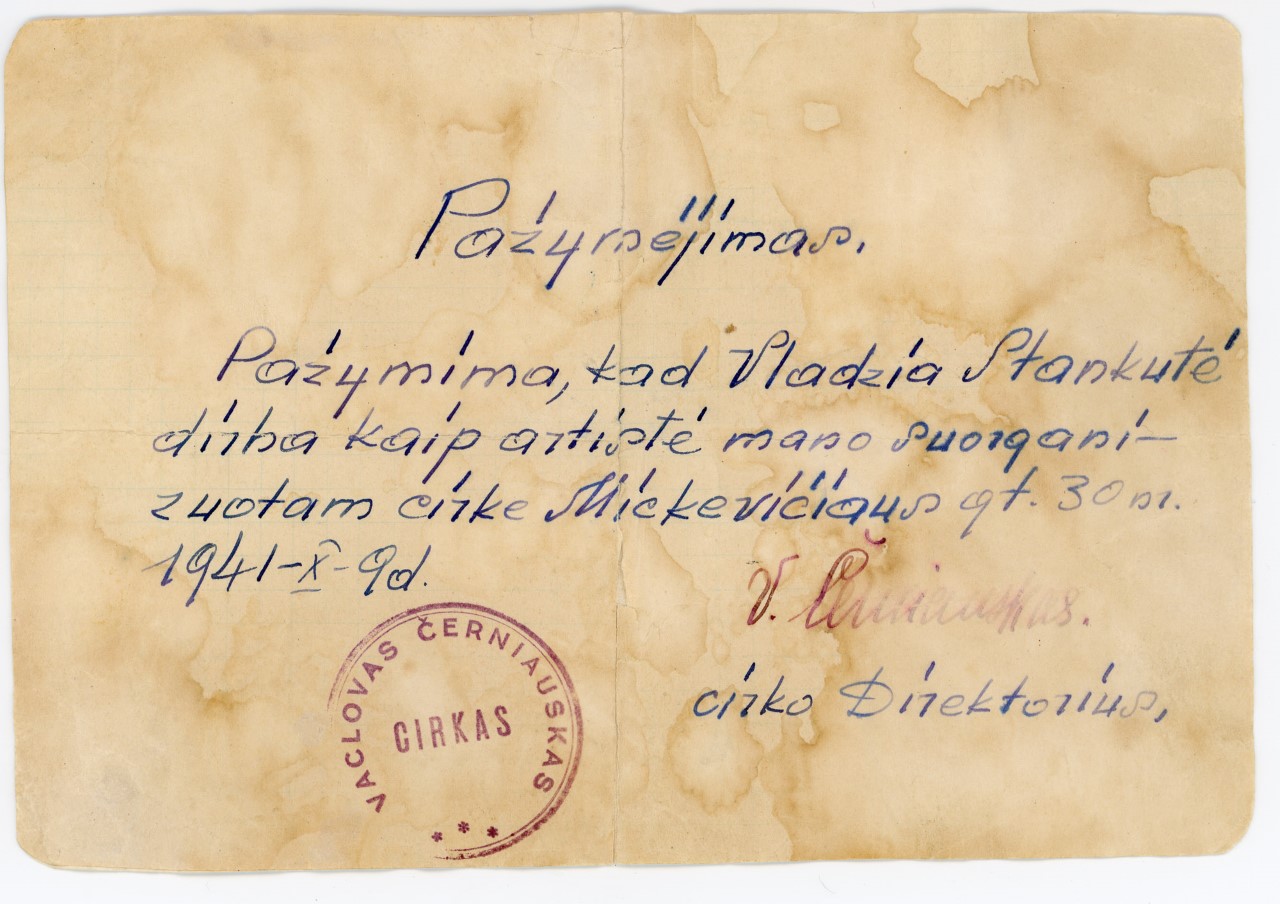 Pažymėjimas.
Pažymima, kad Vladzia Stankutė
dirba kaip artistė mano suorgani–
zuotam cirke Mickevičiaus gt. 30 nr.
1941–X–9d.
V. Černiauskas.
cirko Direktorius,
VACLOVAS ČERNIAUSKAS
CIRKAS
* * *